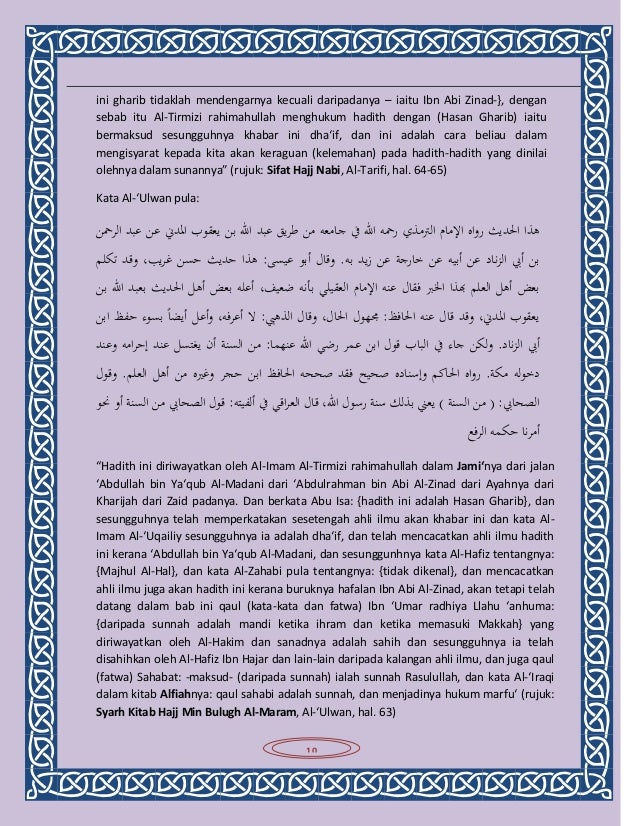 ini gharib tidaklah mendengarnya kecuali daripadanya – iaitu Ibn Abi Zinad-}, dengan
sebab itu Al-Tirmizi rahimahullah menghukum hadith dengan (Hasan Gharib) iaitu
bermaksud sesungguhnya khabar ini dha‘if, dan ini adalah cara beliau dalam
mengisyarat kepada kita akan keraguan (kelemahan) pada hadith-hadith yang dinilai
olehnya dalam sunannya” (rujuk: Sifat Hajj Nabi, Al-Tarifi, hal. 64-65)
Kata Al-‘Ulwan pula:
هذا الحديث رواه الإمام الترمذي رحمه الله في جامعه من طريق عبد الله بن يعقوب المدني عن عبد الرحمن
بن أبي الزناد عن أبيه عن خارجة عن زيد به. وقال أبو عيسى: هذا حديث حسن غريب، وقد تكلم
بعض أهل العلم بهذا الخبر فقال عنه الإمام العقيلي بأنه ضعيف، أعله بعض أهل الحديث بعبد الله بن
يعقوب المدني، وقد قال عنه الحافظ: مجهول الحال، وقال الذهبي: لا أعرفه، وأعل أيضاً بسوء حفظ ابن
أبي الزناد. ولكن جاء في الباب قول ابن عمر رضي الله عنهما: من السنة أن يغتسل عند إحرامه وعند
دخوله مكة. رواه الحاكم وإسناده صحيح فقد صححه الحافظ ابن حجر وغيره من أهل العلم. وقول
الصحابي: ( من السنة ) يعني بذلك سنة رسول الله، قال العراقي في ألفيته: قول الصحابي من السنة أو نحو
أمرنا حكمه الرفع
“Hadith ini diriwayatkan oleh Al-Imam Al-Tirmizi rahimahullah dalam Jami‘nya dari jalan
‘Abdullah bin Ya‘qub Al-Madani dari ‘Abdulrahman bin Abi Al-Zinad dari Ayahnya dari
Kharijah dari Zaid padanya. Dan berkata Abu Isa: {hadith ini adalah Hasan Gharib}, dan
sesungguhnya telah memperkatakan sesetengah ahli ilmu akan khabar ini dan kata Al-
Imam Al-‘Uqailiy sesungguhnya ia adalah dha‘if, dan telah mencacatkan ahli ilmu hadith
ini kerana ‘Abdullah bin Ya‘qub Al-Madani, dan sesunggunhnya kata Al-Hafiz tentangnya:
{Majhul Al-Hal}, dan kata Al-Zahabi pula tentangnya: {tidak dikenal}, dan mencacatkan
ahli ilmu juga akan hadith ini kerana buruknya hafalan Ibn Abi Al-Zinad, akan tetapi telah
datang dalam bab ini qaul (kata-kata dan fatwa) Ibn ‘Umar radhiya Llahu ‘anhuma:
{daripada sunnah adalah mandi ketika ihram dan ketika memasuki Makkah} yang
diriwayatkan oleh Al-Hakim dan sanadnya adalah sahih dan sesungguhnya ia telah
disahihkan oleh Al-Hafiz Ibn Hajar dan lain-lain daripada kalangan ahli ilmu, dan juga qaul
(fatwa) Sahabat: -maksud- (daripada sunnah) ialah sunnah Rasulullah, dan kata Al-‘Iraqi
dalam kitab Alfiahnya: qaul sahabi adalah sunnah, dan menjadinya hukum marfu‘ (rujuk:
Syarh Kitab Hajj Min Bulugh Al-Maram, Al-‘Ulwan, hal. 63)